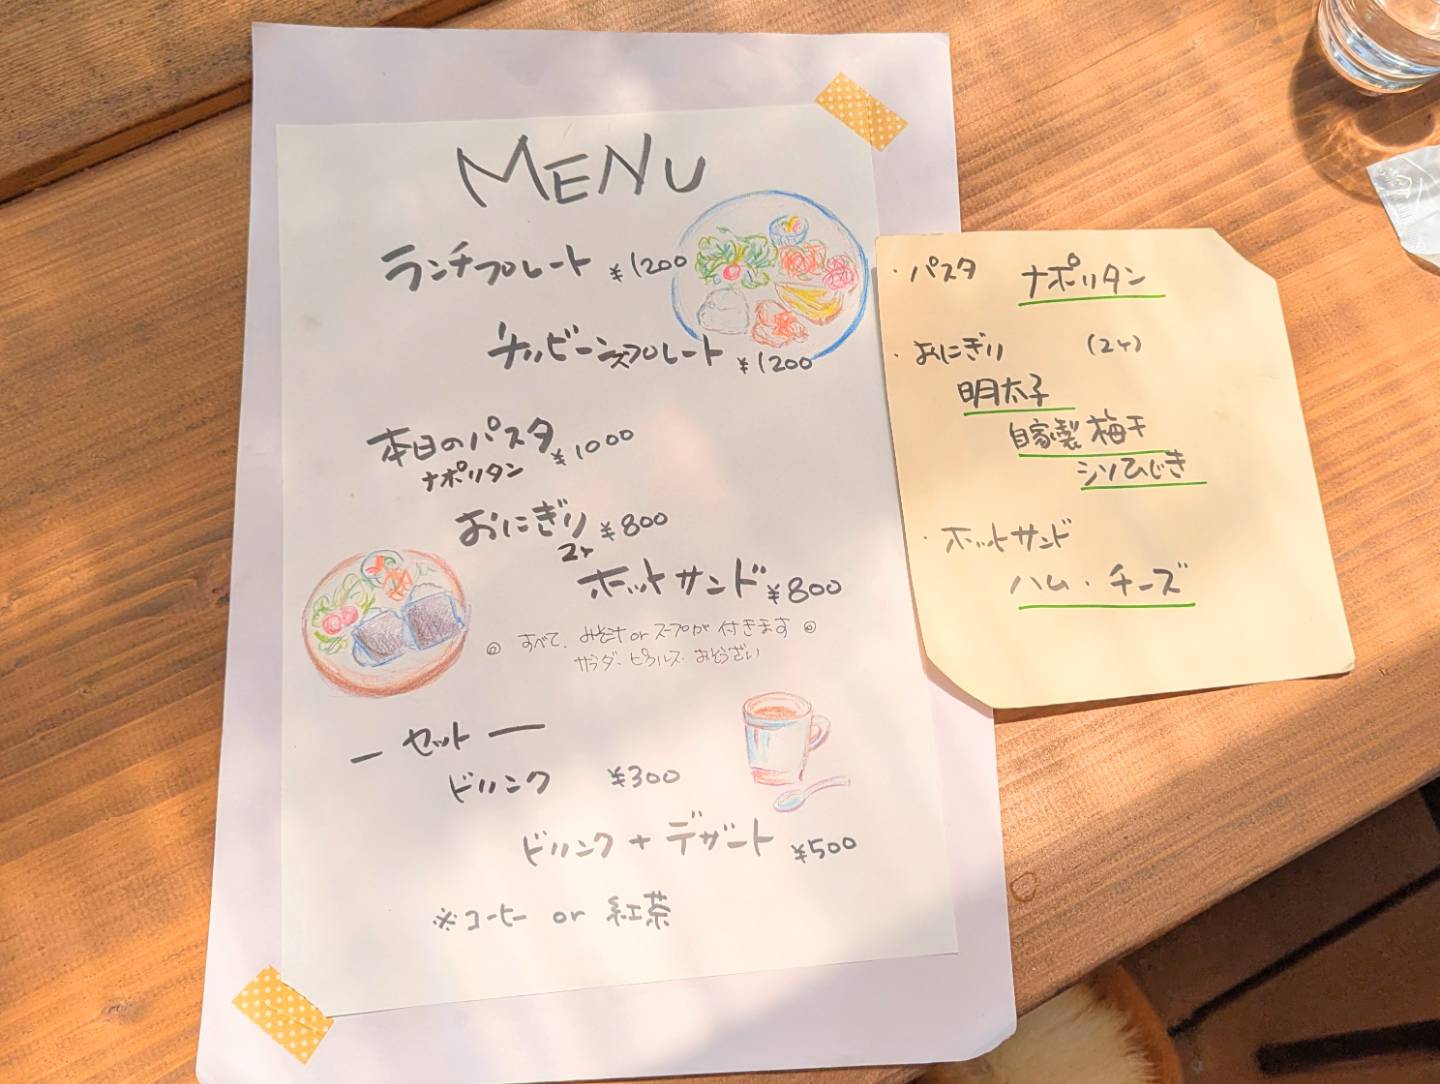 MENU
ランチプレート ¥1200
チリビーンズプレート ¥1200
本日のパスタ ¥1000
ナポリタン
おにぎり ¥800
2ヶ
ホットサンド ¥800
◎ すべて、みそ汁 or スープが付きます ◎
サラダ・ピクルス・おそうざい
― セット ―
ドリンク ¥300
ドリンク + デザート ¥500
※コーヒー or 紅茶
・パスタ ナポリタン
・おにぎり (2ヶ)
明太子
自家製 梅干
シソひじき
・ホットサンド
ハム・チーズ